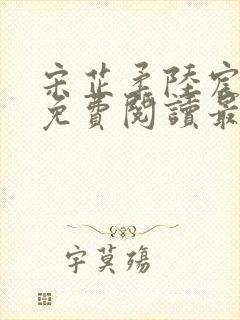 宋芷柔陸宸
免費閱讀最
字莫殤